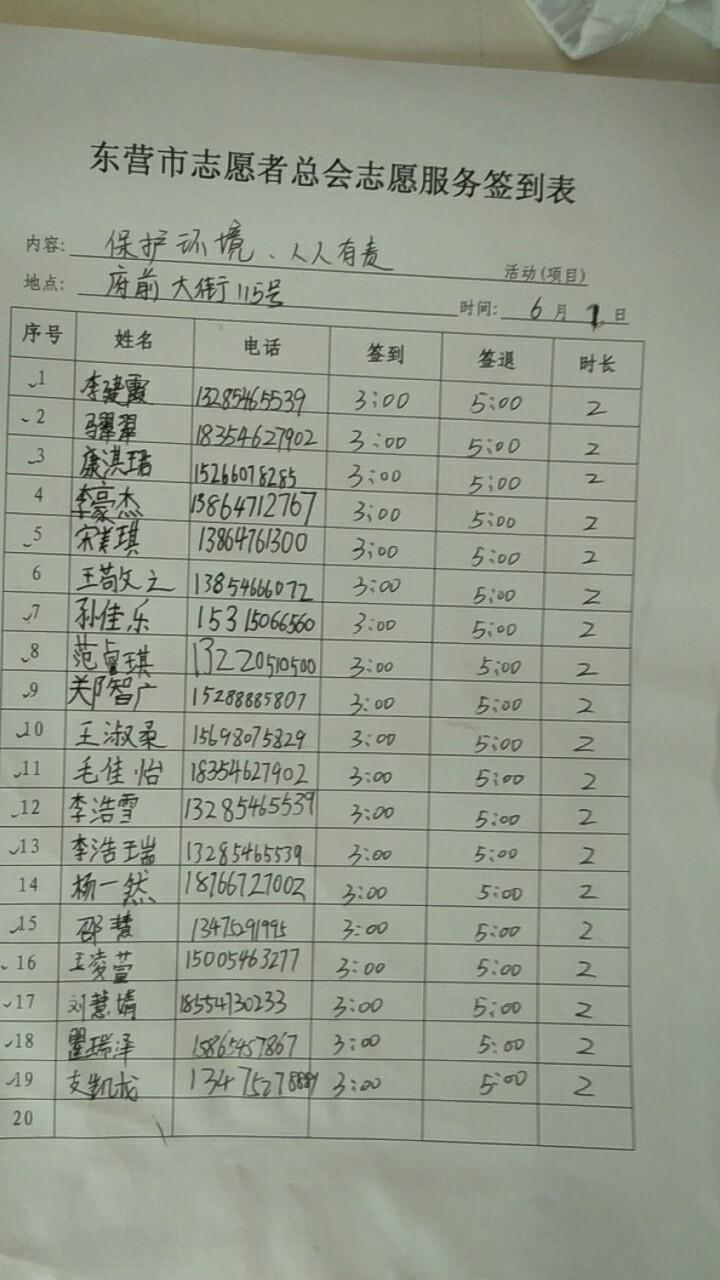 东营市志愿者总会志愿服务签到表
内容: 保护环境、人人有责 活动(项目)
地点: 府前大街115号 时间: 6月1日
序号 姓名 电话 签到 签退 时长
1 李建霞 13285465539 3:00 5:00 2
2 马翠翠 18354627902 3:00 5:00 2
3 康淇瑞 15266078285 3:00 5:00 2
4 李豪杰 13864712767 3:00 5:00 2
5 宋美琪 13864761300 3:00 5:00 2
6 王敬文 13854666072 3:00 5:00 2
7 孙佳乐 15315066560 3:00 5:00 2
8 范卓琪 13220510500 3:00 5:00 2
9 郑智广 15288885807 3:00 5:00 2
10 王淑柔 15698075829 3:00 5:00 2
11 毛佳怡 18354627902 3:00 5:00 2
12 李浩雪 13285465539 3:00 5:00 2
13 李浩瑞 13285465539 3:00 5:00 2
14 杨一然 18766727002 3:00 5:00 2
15 邵慧 13475291995 3:00 5:00 2
16 王凌萱 15005463277 3:00 5:00 2
17 刘慧婧 18554730233 3:00 5:00 2
18 瞿瑞泽 15865457867 3:00 5:00 2
19 支凯龙 3:00 5:00 2
20